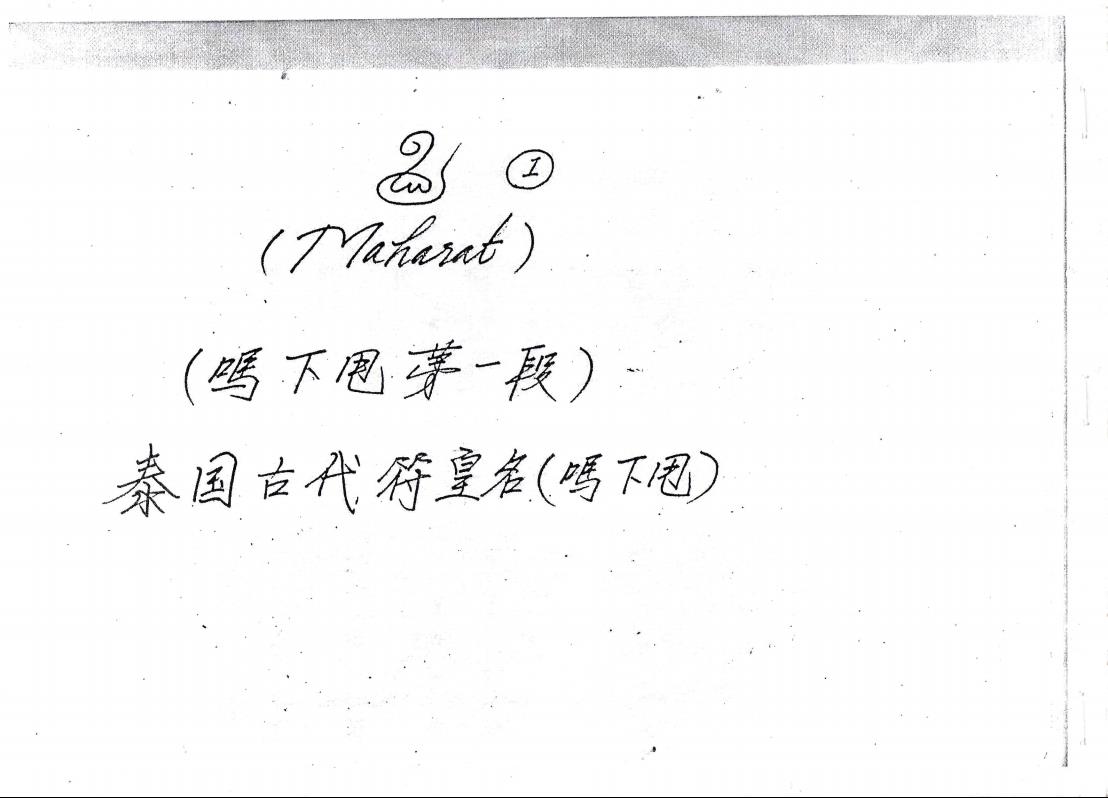 Ⓘ
(Maharat)
(嗎下甩第一段)
泰国古代符皇名(嗎下甩)